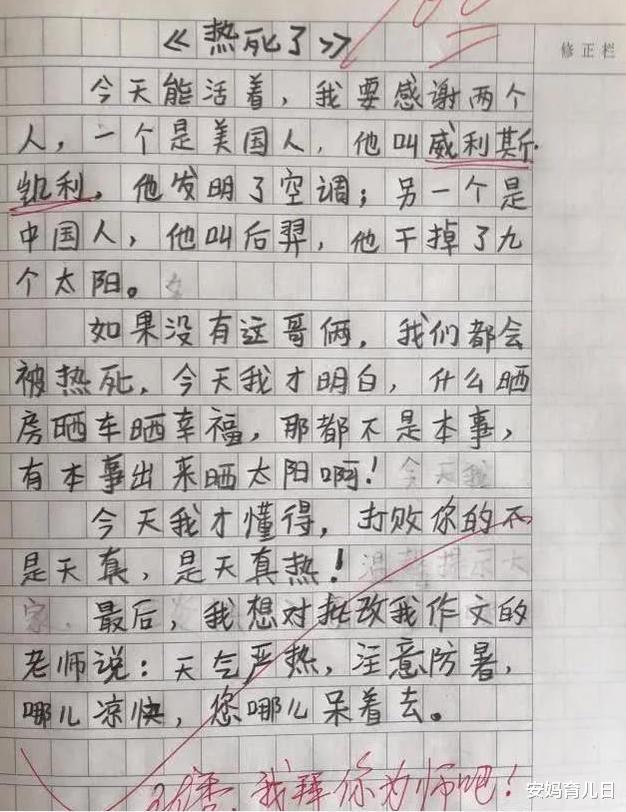 100
《热死了》
修正栏
今天能活着，我要感谢两个
人，一个是美国人，他叫威利斯·
凯利，他发明了空调；另一个是
中国人，他叫后羿，他干掉了九
个太阳。
如果没有这哥俩，我们都会
被热死，今天我才明白，什么晒
房晒车晒幸福，那都不是本事，
有本事出来晒太阳啊！今天我
今天我才懂得，打败你的不
是天真，是天真热！温馨提示大
家 最后，我想对批改我作文的
老师说：天气严热，注意防暑，
哪儿凉快，您哪儿呆着去。
我拜你为师吧！
安妈育儿日